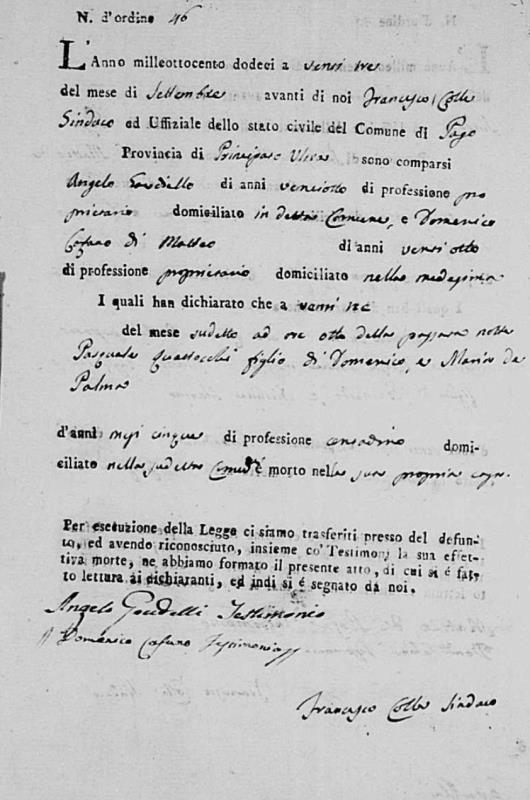 N. d'ordine 46
L'Anno milleottocento dodeci a venti tre
del mese di Settembre avanti di noi Francesco Colle
Sindaco ed Uffiziale dello stato civile del Comune di Pago
Provincia di Principato Ultra sono comparsi
Angelo di anni ventiotto di professione pro
prietario domiciliato in detta Comune, e Domenico
Cafuno di Matteo di anni venti otto
di professione proprietario domiciliato nella medesima
I quali han dichiarato che a venti tre
del mese sudetto ad ore otto della passata notte
Pasquale figlio di Domenico, e Maria de
Palma
d'anni mesi cinque di professione contadino domi-
ciliato nella sudetta Comune è morto nella sua propria casa.
Per esecuzione della Legge ci siamo trasferiti presso del defun-
to, ed avendo riconosciuto, insieme co' Testimonj la sua effet-
tiva morte, ne abbiamo formato il presente atto, di cui si é fat-
to lettura ai dichiaranti, ed indi si é segnato da noi.
Angelo Testimonio
Domenico Cafuno Testimonio
Francesco Colle Sindaco